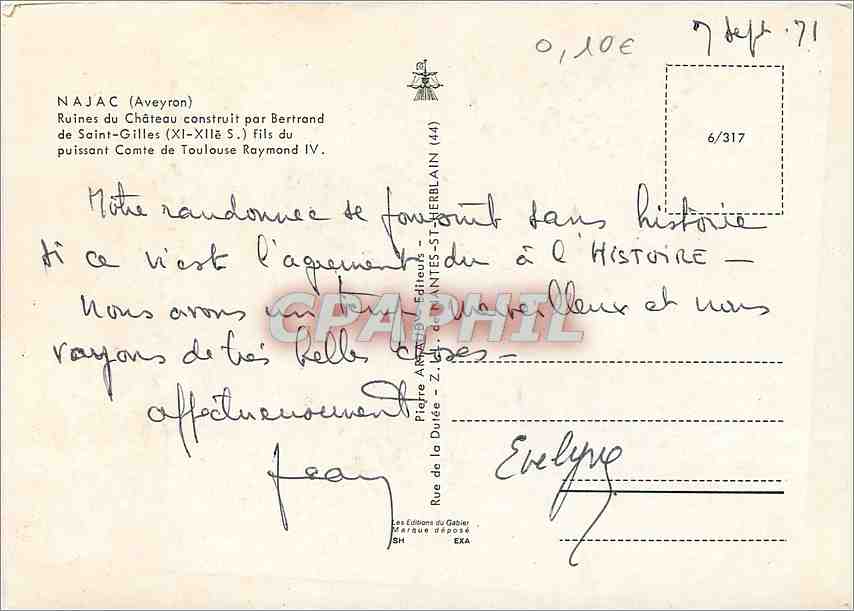 7 Sept. 71
0,10€
NAJAC (Aveyron)
Ruines du Château construit par Bertrand
de Saint-Gilles (XI-XIIè S.) fils du
puissant Comte de Toulouse Raymond IV.
6/317
Notre randonnée se poursuit sans histoire
si ce n'est l'agrément du à l'HISTOIRE —
Nous avons un temps merveilleux et nous
voyons de très belles choses —
affectueusement
Jean
Evelyne
CPAPHIL
Pierre ARTAUD - Editeurs -
Rue de la Dutée - Z. I. de NANTES-ST-HERBLAIN (44)
Les Editions du Gabier
Marque déposé
SH EXA